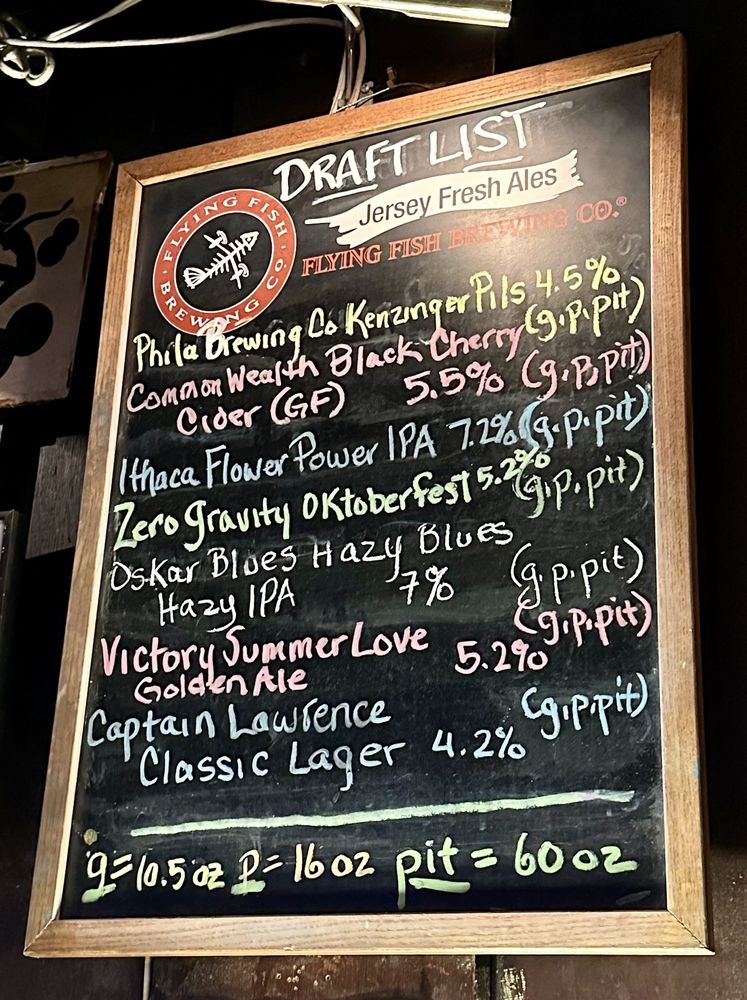 DRAFT LIST
Jersey Fresh Ales
FLYING FISH BREWING CO.®
FLYING FISH BREWING CO.
Phila Brewing Co Kenzinger Pils 4.5%
(g.p.pit)
Common Wealth Black Cherry
Cider (GF) 5.5% (g.p.pit)
Ithaca Flower Power IPA 7.2% (g.p.pit)
Zero gravity Oktoberfest 5.2%
(g.p.pit)
Oskar Blues Hazy Blues
Hazy IPA 7% (g.p.pit)
Victory Summer Love (g.p.pit)
Golden Ale 5.2%
Captain Lawrence (g.p.pit)
Classic Lager 4.2%
g=10.5 oz p=16 oz pit = 60 oz